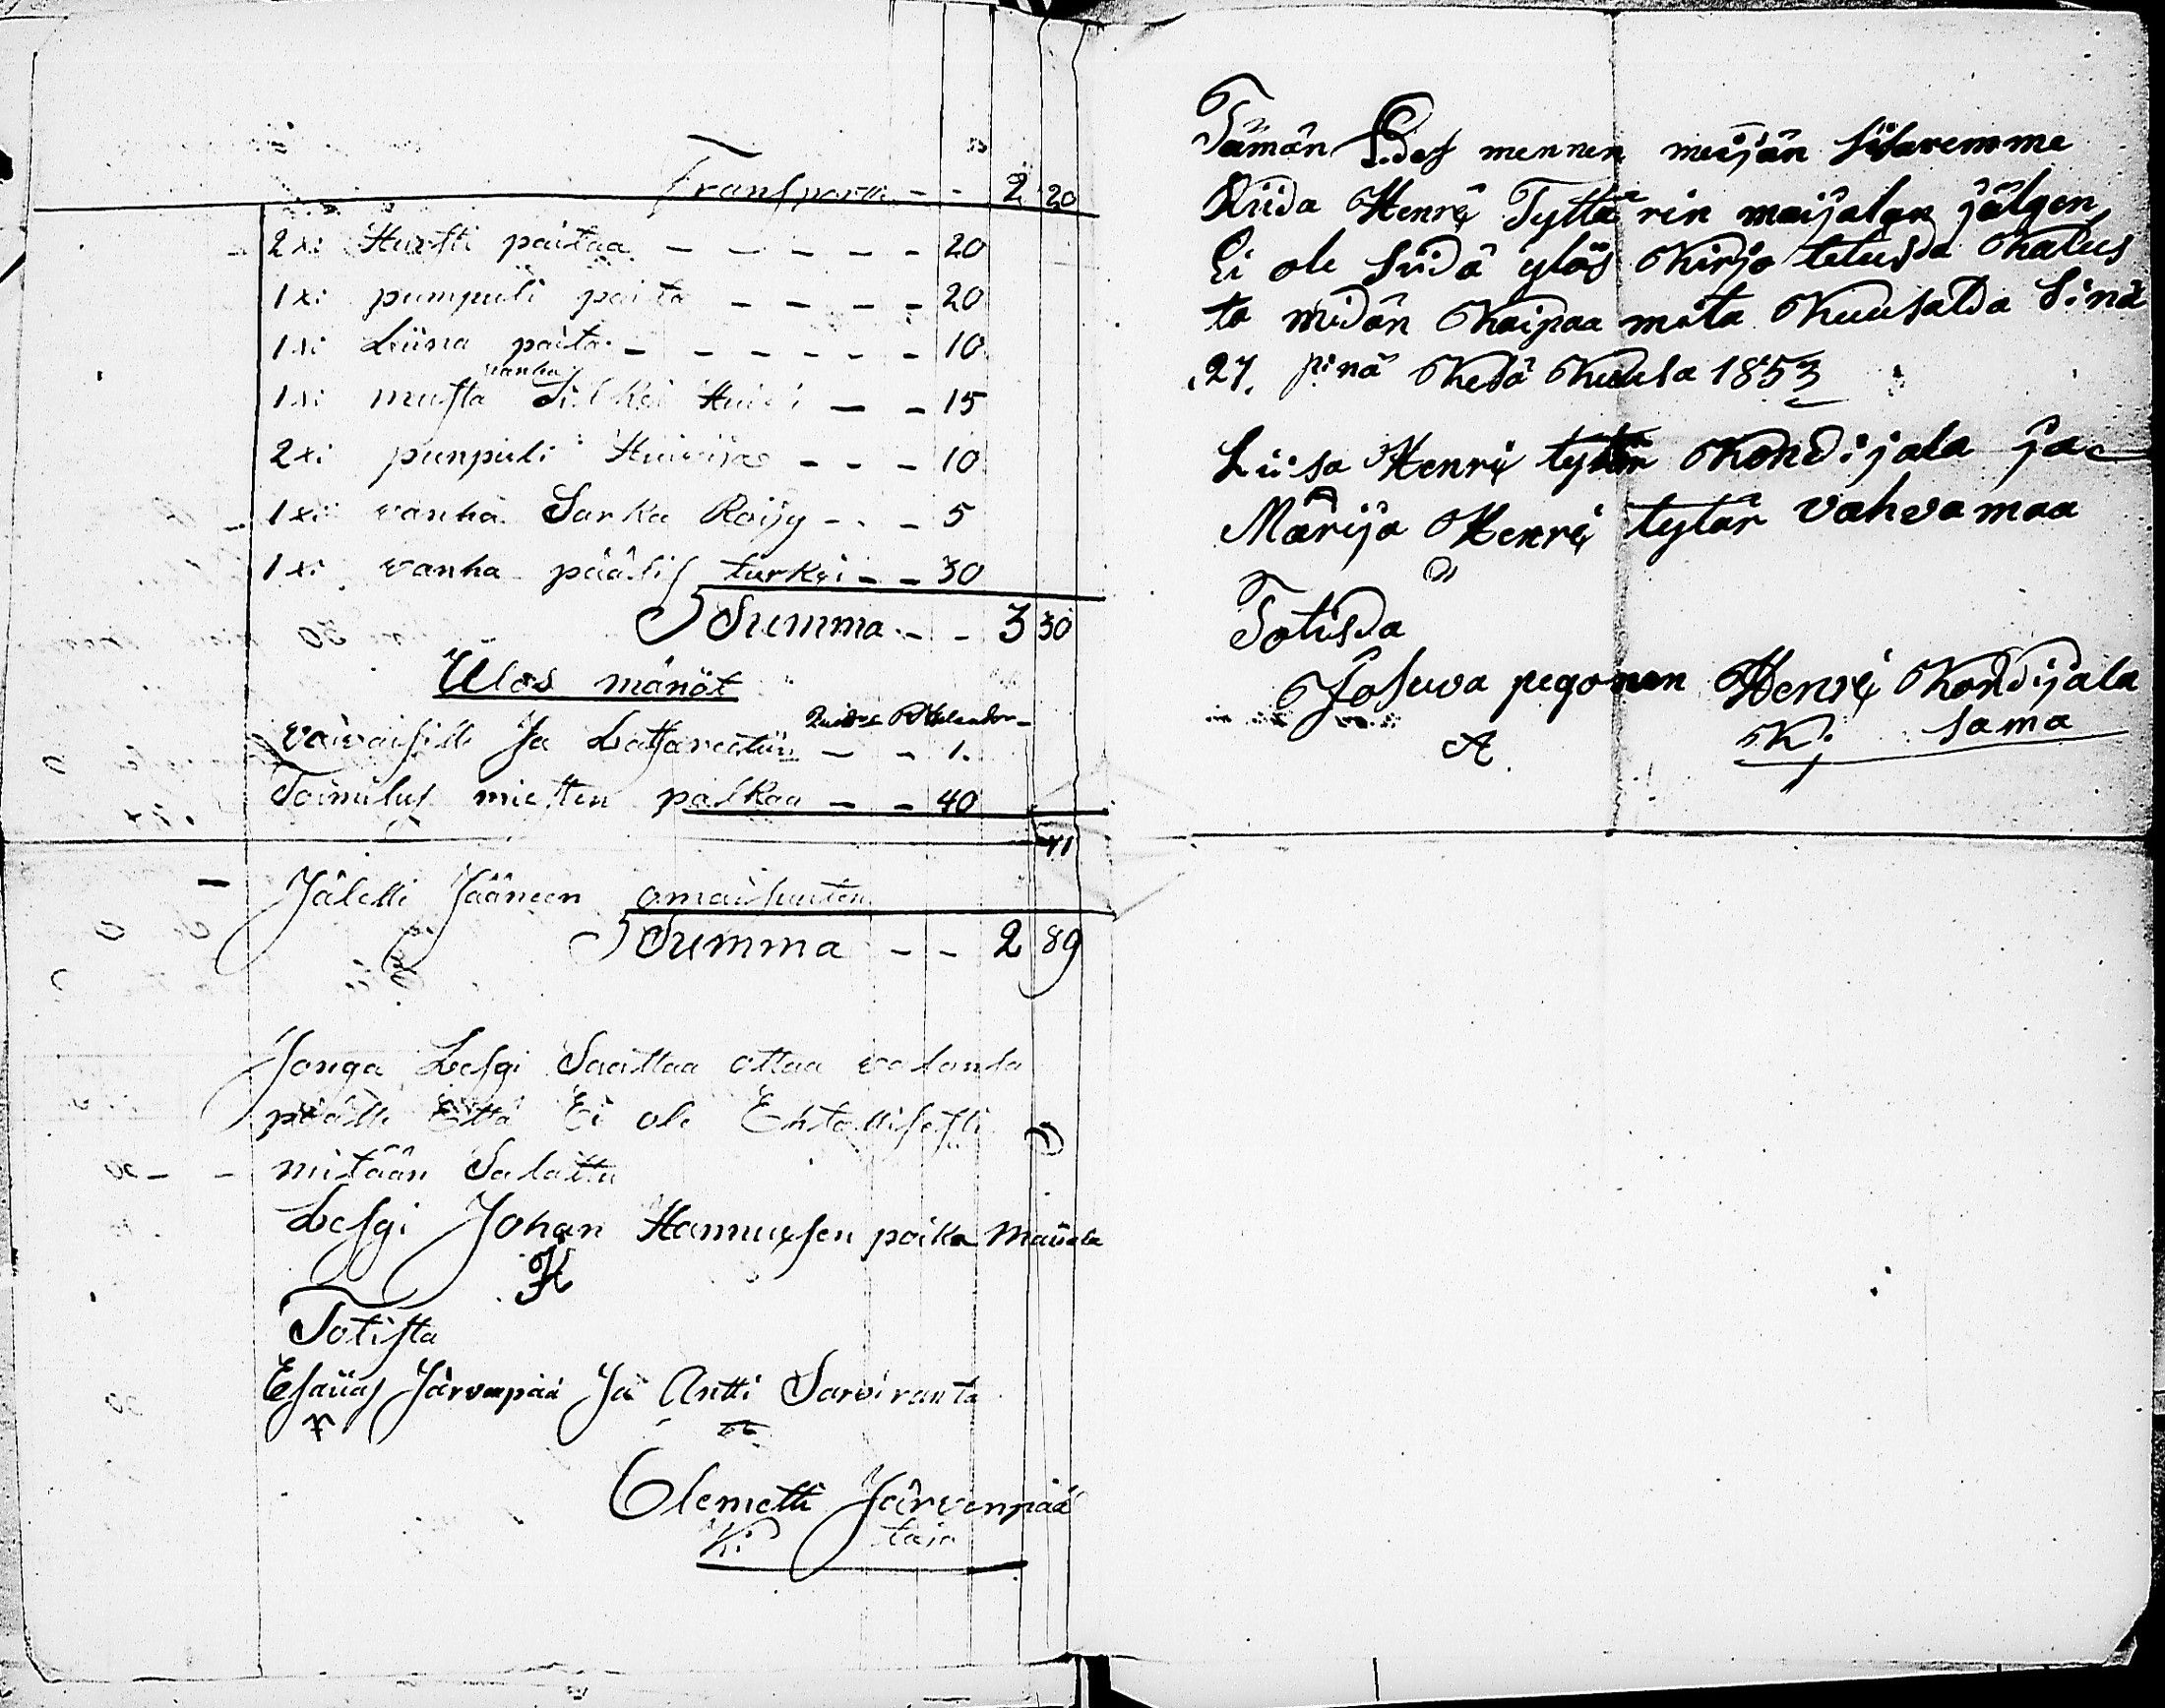 Transportti - - 2 20
2xi Hursti paitaa - - - - - 20
1xi pumpuli paita - - - - 20
1xi Liina paita - - - - - - 10
vanha
1xi musta Silkki Huivi - - 15
2xi punpuli Huivija - - - 10
1xi vanha Sarka Röijy - - - 5
1xi vanha päälis turkki - - 30
Summa - - 3 30
Ulos mänöt
vaivaisille Ja Latsarettiin - - 1.
Toimitus miesten palkaa - - 40
41
Jälelle Jääneen omaisuuten
Summa - - 2 89
Jonga Lesgi Saattaa ottaa valansa
päälle Että Ei ole Ehtollisesti
mitään Salattu
Lesgi Johan Hannuxsen poika Maijala
H
Totista
Esaijas Järvenpää Ja Antti Sarviranta
Clemetti Järvenpää
Ki taja
Tämän Edes mennen meijän Sisaremme
Kiida Henri Tyttärin maijalan jälgen
Ei ole Siidä ylös Kirjo tetusda Kalus
ta midän Kaipaa mata Kuusalda Sinä
27. pinä Kesä Kuusa 1853
Liisa Henri tytär Kondijala ja
Marija Henri tytär vahvamaa
Totisda
Josuva pegonen Henri Kondijala
A K: sama